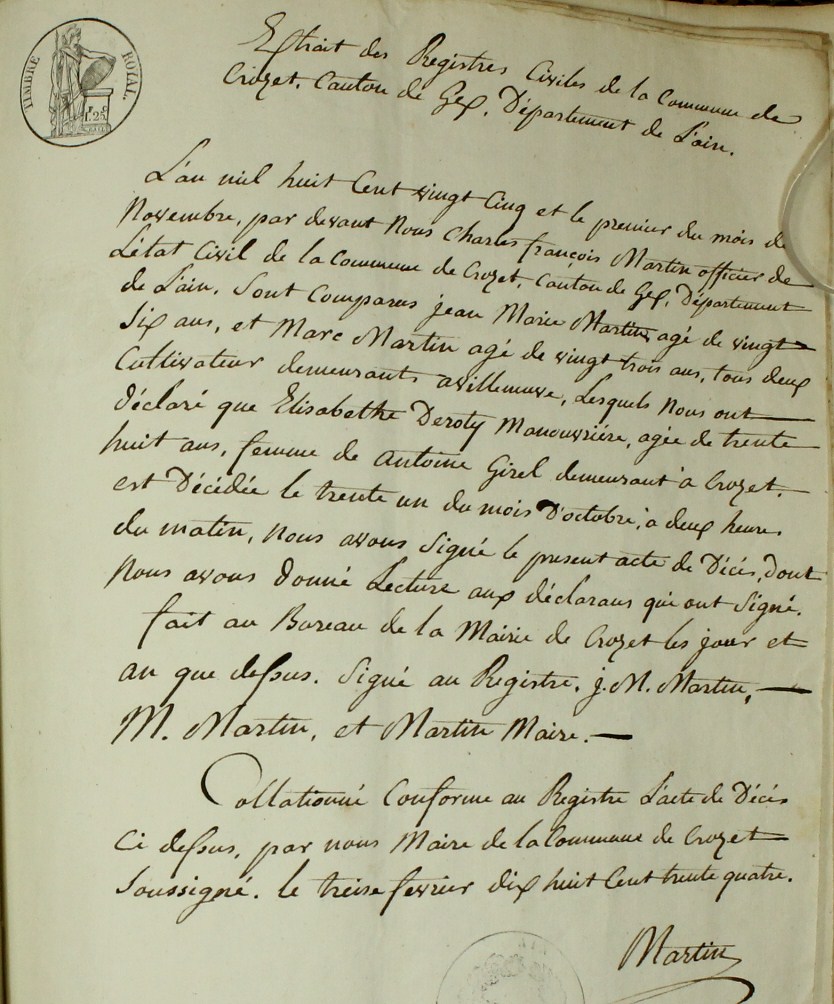 TIMBRE ROYAL.
F. C
1.25
Extrait des Registres Civiles de la Commune de
Crozet. Canton de Gex. Département de L'ain.
L'an mil huit Cent vingt Cinq et le premier du mois de
Novembre, par devant Nous Charles françois Martin officier de
L'état Civil de la Commune de Crozet, Canton de Gex, Département
de L'ain. Sont Comparus jean Marie Martin, agé de vingt
Six ans, et Marc Martin agé de vingt trois ans, tous deux
Cultivateur demeurants avilleneuve, Lesquels Nous ont
déclaré que Elisabethe Deroty Manouvriére, agée de trente
huit ans, femme de Antoine Girel demeurant à Crozet.
est Décédée le trente un du mois D'octobre, à deux heures
du matin, nous avons Signé le present acte de Décés, Dont
Nous avons donné Lecture aux déclarans qui ont Signé.
fait au Bureau de la Mairie de Crozet les jour et
an que dessus. Signé au Registre. j. M. Martin,
M. Martin, et Martin Maire.
Collationné Conforme au Registre L'acte de Décés
Ci dessus, par nous Maire de la Commune de Crozet
Soussigné. le treise fevrier dix huit Cent trente quatre.
Martin